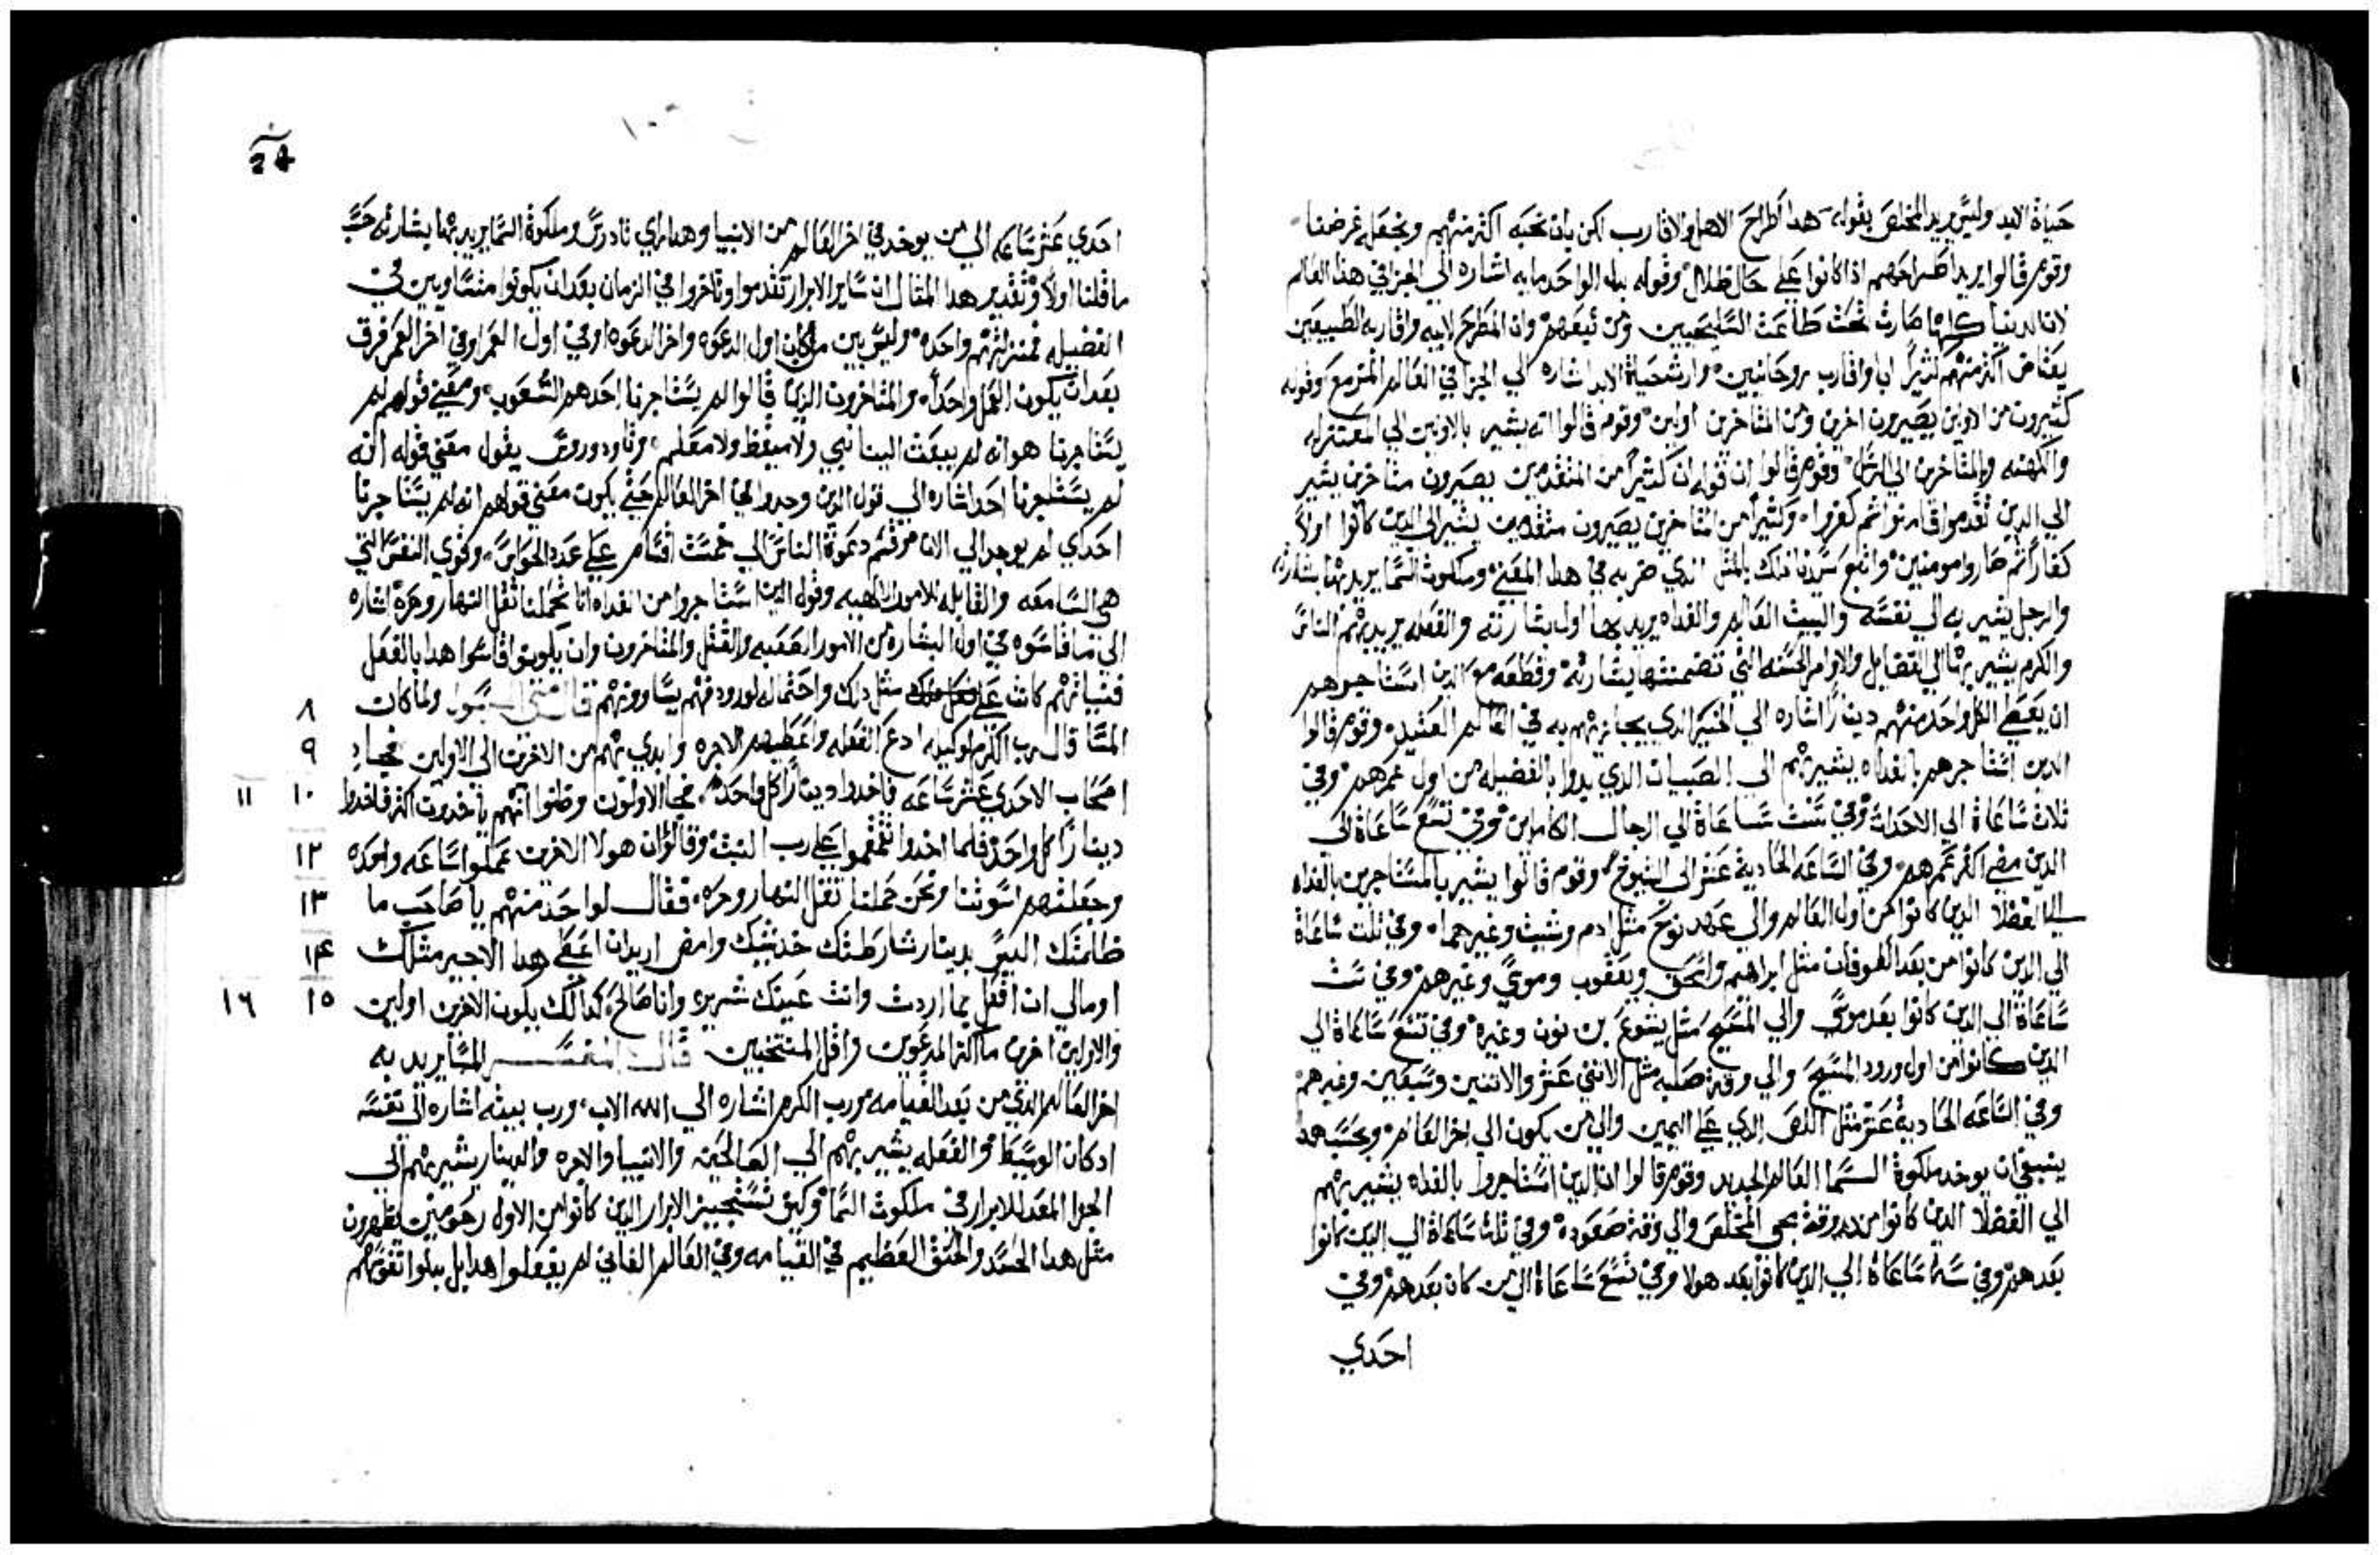 حياة الابد وليس يريد المخلص بقوله هدا اطراح الاهل والاقارب لكن بان نحبه اكثر منهم ونجعله غرضنا
وقوم قالوا يريد اطراحهم اذا كانوا علي حال ظلال وقوله بدل الواحد مايه اشاره الي الجزا في هذا العالم
لان الدنيا كلها صارت تحت طاعت السليحيين ومن تبعهم وان المطرح لابيه واقاربه الطبيعيين
يعتاض اكثر منهم كثيرا ابا واقارب روحانيين وارث حياة الابد اشاره الي الجزا في العالم المزمع وقوله
كثيرون من الاولين يصيرون اخرين ومن المتاخرين اولين وقوم قالوا انه يشير بالاولين الي المعتزله
والكهنه والمتاخرين الي الرسل وقوم قالوا ان قوله ان كثيرا من المتقدمين يصيرون متاخرين يشير
الي الدين تقدموا فامنوا ثم كفروا وكثيرا من المتاخرين يصيرون متقدمين يشير الي الدين كانوا اولا
كفارا ثم صاروا مومنين واتبع سيدنا ذلك بالمثل الذي ضربه في هدا المعني وملكوت السما يريد بها بشارته
والرجل يشير به الي نفسه والبيت العالم والغداه يريد بها اول بشارته والفعله يريد بهم الناس
والكرم يشير بها الي الفضايل والاوامر الحسنه التي تضمنتها بشارته وقطعه مع الدين استاجرهم
ان يعطي الكل واحد منهم دينارا اشاره الي الخير الدي يجازيهم به في العالم العتيد وقوم قالوا
الدين استاجرهم بالغداه يشير بهم الي الصبيان الدي بدوا بالفضيله من اول عمرهم وفي
ثلاث ساعاة الي الاحداث وفي ست ساعاة الي الرجال الكاملين وفي تسع ساعاة الي
الدين مضي اكثر عمرهم وفي الساعه الحادية عشر الي الشيوخ وقوم قالوا يشير بالمستاجرين بالغداه
الي الفضلا الدين كانوا من اول العالم والي عهد نوح مثل ادم وشيث وغيرهما وفي ثلث ساعاة
الي الدين كانوا من بعد الطوفان مثل ابراهيم واسحق ويعقوب وموسي وغيرهم وفي ست
ساعاة الي الدين كانوا بعد موسي والي المسيح مثل يشوع بن نون وغيره وفي تسع ساعاة الي
الدين كانوا من اول ورود المسيح والي وقت صلبه مثل الاثني عشر والاثنين وسبعين وغيرهم
وفي الساعه الحادية عشر مثل اللص الدي علي اليمين والي من يكون الي اخر العالم وبحسب هدا
ينبغي ان يوخد ملكوة السما العالم الجديد وقوم قالوا ان الدين استاجروا بالغداه يشير بهم
الي الفضلا الدين كانوا من وقت يحيي المخلص والي وقت صعوده وفي ثلث ساعاة الي الدين كانوا
بعدهم وفي ستة ساعاة الي الدين كانوا بعد هولا وفي تسع ساعاة الي من كان بعدهم وفي
احدي
24
احدي عشر ساعه الي من يوخد في اخر العالم من الانبيا وهدا راي تادورس وملكوة السما يريد بها بشارته حسب
ما قلنا اولا وتقدير هدا المقال ان ساير الابرار تقدموا او تاخروا في الزمان بعد ان يكونوا متساويين في
الفضيله فمنزلتهم واحده وليس بين من كان اول الدعوه واخر الدعوه او في اول العمر او في اخر العمر فرق
بعد ان يكون العمل واحدا والمتاخرون انما قالوا لم يستاجرنا احد هم الشعوب ومعني قولهم لم
يستاجرنا هو انه لم يبعث الينا نبي ولا ميقظ ولا معلم وتاودوروس يقول معني قوله انه
لم يستاجرنا احد اشاره الي قول الدين وجدوا في اخر العالم حتي يكون معني قولهم انه لم يستاجرنا
احد اي لم يوجد الي الان من قسم دعوة الناس الي خمست اقسام علي عدد الحواس وقوي النفس التي
هي السامعه والقابله للامور الالهيه وقول الدين استاجروا من الغداه انا تحملنا ثقل النهار وحره اشاره
الي ما قاسوه في اول البشاره من الامور الصعبه والقتل والمتاخرون وان يكونوا قاسوا هدا بالفعل
فنياتهم كانت علي مثل دلك واحتماله لو ورد فهم يساوونهم قال متي الرسول ولما كان ٨
المسا قال رب الكرم لوكيله ادع الفعله واعطيهم الاجره وابدي بهم من الاخرين الي الاولين فجا ٩
اصحاب الاحدي عشر ساعه فاخدوا دينارا كل واحد فجا الاولون وظنوا انهم ياخدون اكثر فاخدوا ١٠ ١١
دينارا كل واحد فلما اخدوا تقمقموا علي رب البيت وقالوا ان هولا الاخرين عملوا ساعه واحده ١٢
وجعلتهم اسوتنا ونحن حملنا ثقل النهار وحره فقال لواحد منهم يا صاحب ما ١٣
ظلمتك اليس بدينار شارطتك خد شيك وامض اريد ان اعطي هدا الاجير مثلك ١٤
او مالي ان افعل بما اردت وانت عينك شريره وانا صالح كدالك يكون الاخرين اولين ١٥ ١٦
والاولين اخرين ما اكثر المدعوين واقل المنتخبين قال المفسر المسا يريد به
اخر العالم الذي من بعد القيامه ورب الكرم اشاره الي الله الاب ورب بيته اشاره الي نفسه
اد كان الوسيط والفعله يشير بهم الي الصالحين والانبيا والاجره والدينار يشير بهم الي
الجزا المعد للابرار في ملكوت السما وكيف تستجيز الابرار الدين كانوا من الاول يظهرون
مثل هدا الحسد والحنق العظيم في القيامه وفي العالم الفاني لم يفعلوا هدا بل بدلوا نفوسهم